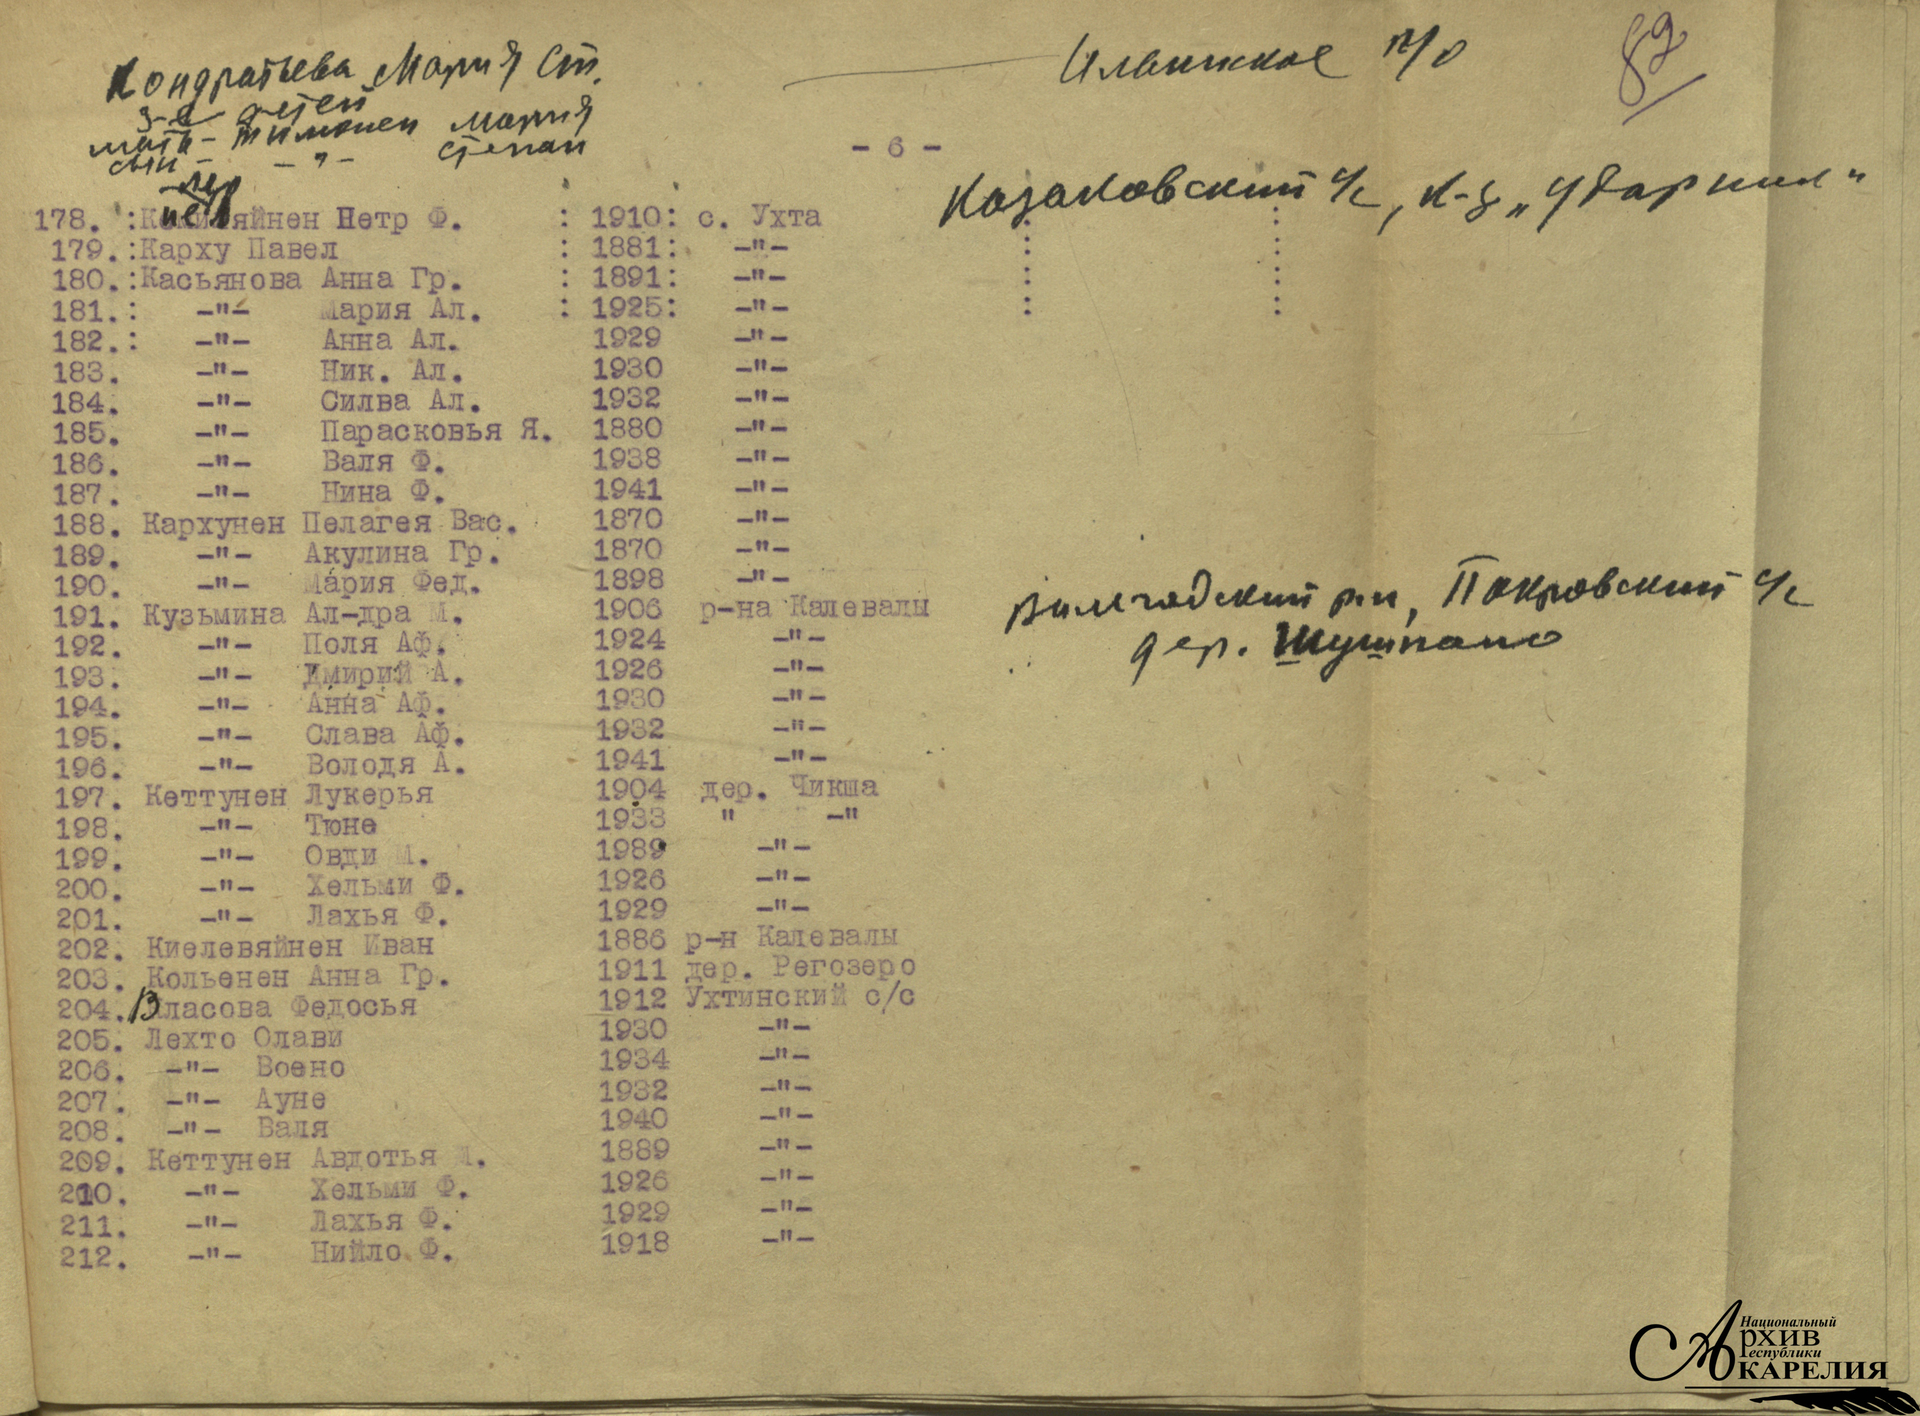 Кондратьева Мария Ст. Ильинское п/о 89
3-е детей
мать - Тимонен Мария
сын - -"- Степан
- 6 -
Казаковский с/с, к-з "Ударник"
178. : Петр Ф. : 1910: с. Ухта
179.:Карху Павел : 1881: -"-
180.:Касьянова Анна Гр. : 1891: -"-
181.: -"- Мария Ал. : 1925: -"-
182.: -"- Анна Ал. 1929 -"-
183. -"- Ник. Ал. 1930 -"-
184. -"- Силва Ал. 1932 -"-
185. -"- Парасковья Я. 1880 -"-
186. -"- Валя Ф. 1938 -"-
187. -"- Нина Ф. 1941 -"-
188. Кархунен Пелагея Вас. 1870 -"-
189. -"- Акулина Гр. 1870 -"-
190. -"- Мария Фед. 1898 -"-
191. Кузьмина Ал-дра М. 1906 р-на Калевалы р-н, Покровский с/с
192. -"- Поля Аф. 1924 -"- дер. Шушпано
193. -"- Дмирий А. 1926 -"-
194. -"- Анна Аф. 1930 -"-
195. -"- Слава Аф. 1932 -"-
196. -"- Володя А. 1941 -"-
197. Кеттунен Лукерья 1904 дер. Чикша
198. -"- Тюне 1933 " -"
199. -"- Овди М. 1989 -"-
200. -"- Хельми Ф. 1926 -"-
201. -"- Лахья Ф. 1929 -"-
202. Киелевяйнен Иван 1886 р-н Калевалы
203. Кольенен Анна Гр. 1911 дер. Регозеро
204. Власова Федосья 1912 Ухтинский с/с
205. Лехто Олави 1930 -"-
206. -"- Воено 1934 -"-
207. -"- Ауне 1932 -"-
208. -"- Валя 1940 -"-
209. Кеттунен Авдотья М. 1889 -"-
210. -"- Хельми Ф. 1926 -"-
211. -"- Лахья Ф. 1929 -"-
212. -"- Нийло Ф. 1918 -"-
Национальный
Архив
Республики
Карелия